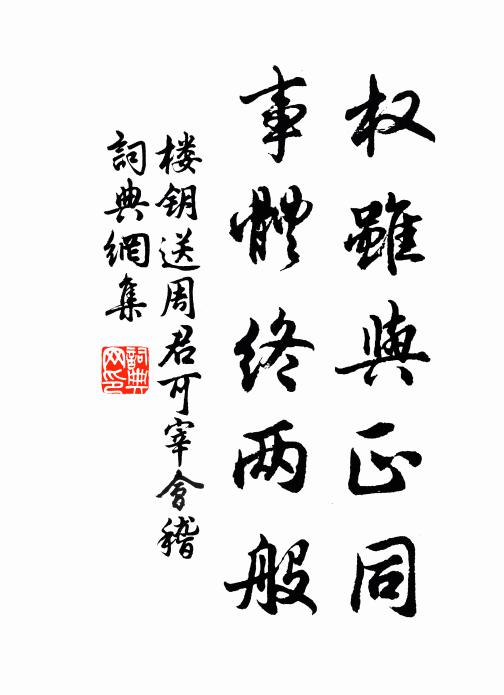 权雖與正同
事體终两般
楼钥送周君可宰會稽
詞典網集
詞典
网印